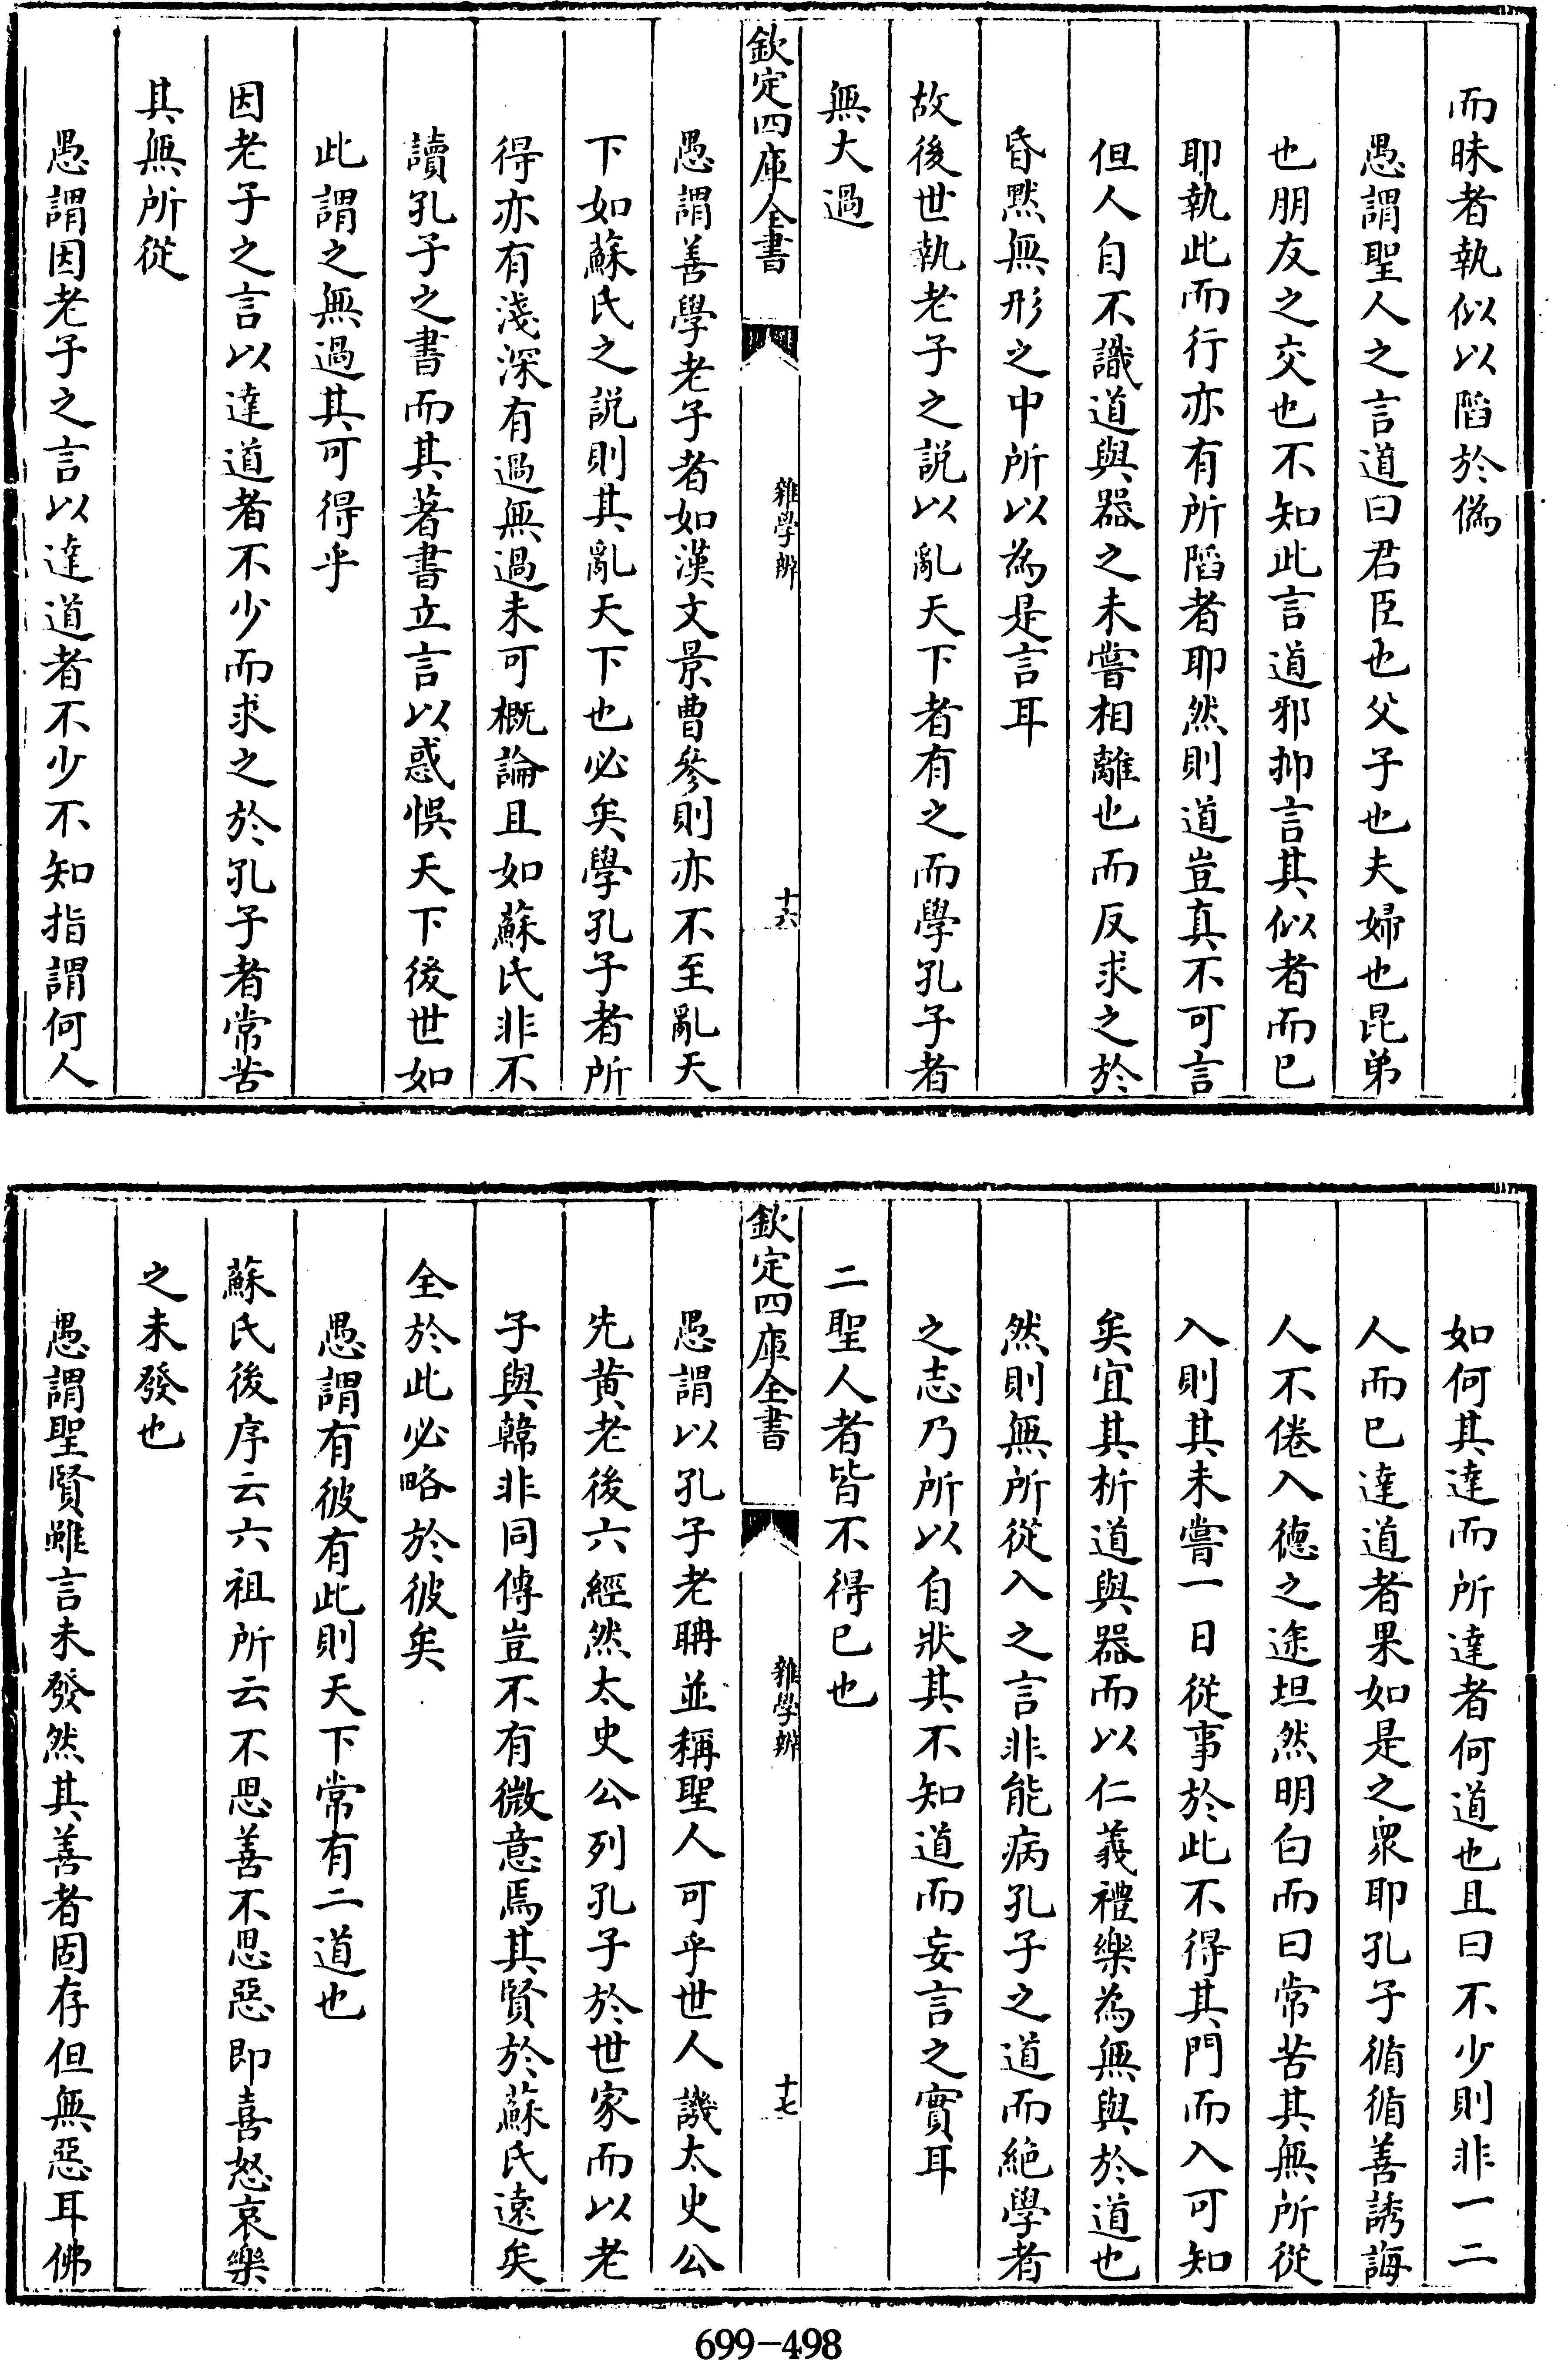 而昧者執似以陷於偽
愚謂聖人之言道曰君臣也父子也夫婦也昆弟
也朋友之交也不知此言道邪抑言其似者而已
耶執此而行亦有所陷者耶然則道豈真不可言
但人自不識道與器之未嘗相離也而反求之於
昏黙無形之中所以為是言耳
故後世執老子之説以亂天下者有之而學孔子者
無大過
欽定四庫全書
雜學辨
十六
愚謂善學老子者如漢文景曹參則亦不至亂天
下如蘇氏之説則其亂天下也必矣學孔子者所
得亦有淺深有過無過未可概論且如蘇氏非不
讀孔子之書而其著書立言以惑悞天下後世如
此謂之無過其可得乎
因老子之言以達道者不少而求之於孔子者常苦
其無所從
愚謂因老子之言以達道者不少不知指謂何人
如何其達而所達者何道也且曰不少則非一二
人而已達道者果如是之衆耶孔子循循善誘誨
人不倦入徳之途坦然明白而曰常苦其無所從
入則其未嘗一日從事於此不得其門而入可知
矣宜其析道與器而以仁義禮樂為無與於道也
然則無所從入之言非能病孔子之道而絶學者
之志乃所以自狀其不知道而妄言之實耳
二聖人者皆不得已也
欽定四庫全書
雜學辨
十七
愚謂以孔子老聃並稱聖人可乎世人譏太史公
先黄老後六經然太史公列孔子於世家而以老
子與韓非同傳豈不有微意焉其賢於蘇氏逺矣
全於此必略於彼矣
愚謂有彼有此則天下常有二道也
蘇氏後序云六祖所云不思善不思惡即喜怒哀樂
之未發也
愚謂聖賢雖言未發然其善者固存但無惡耳佛
699-498